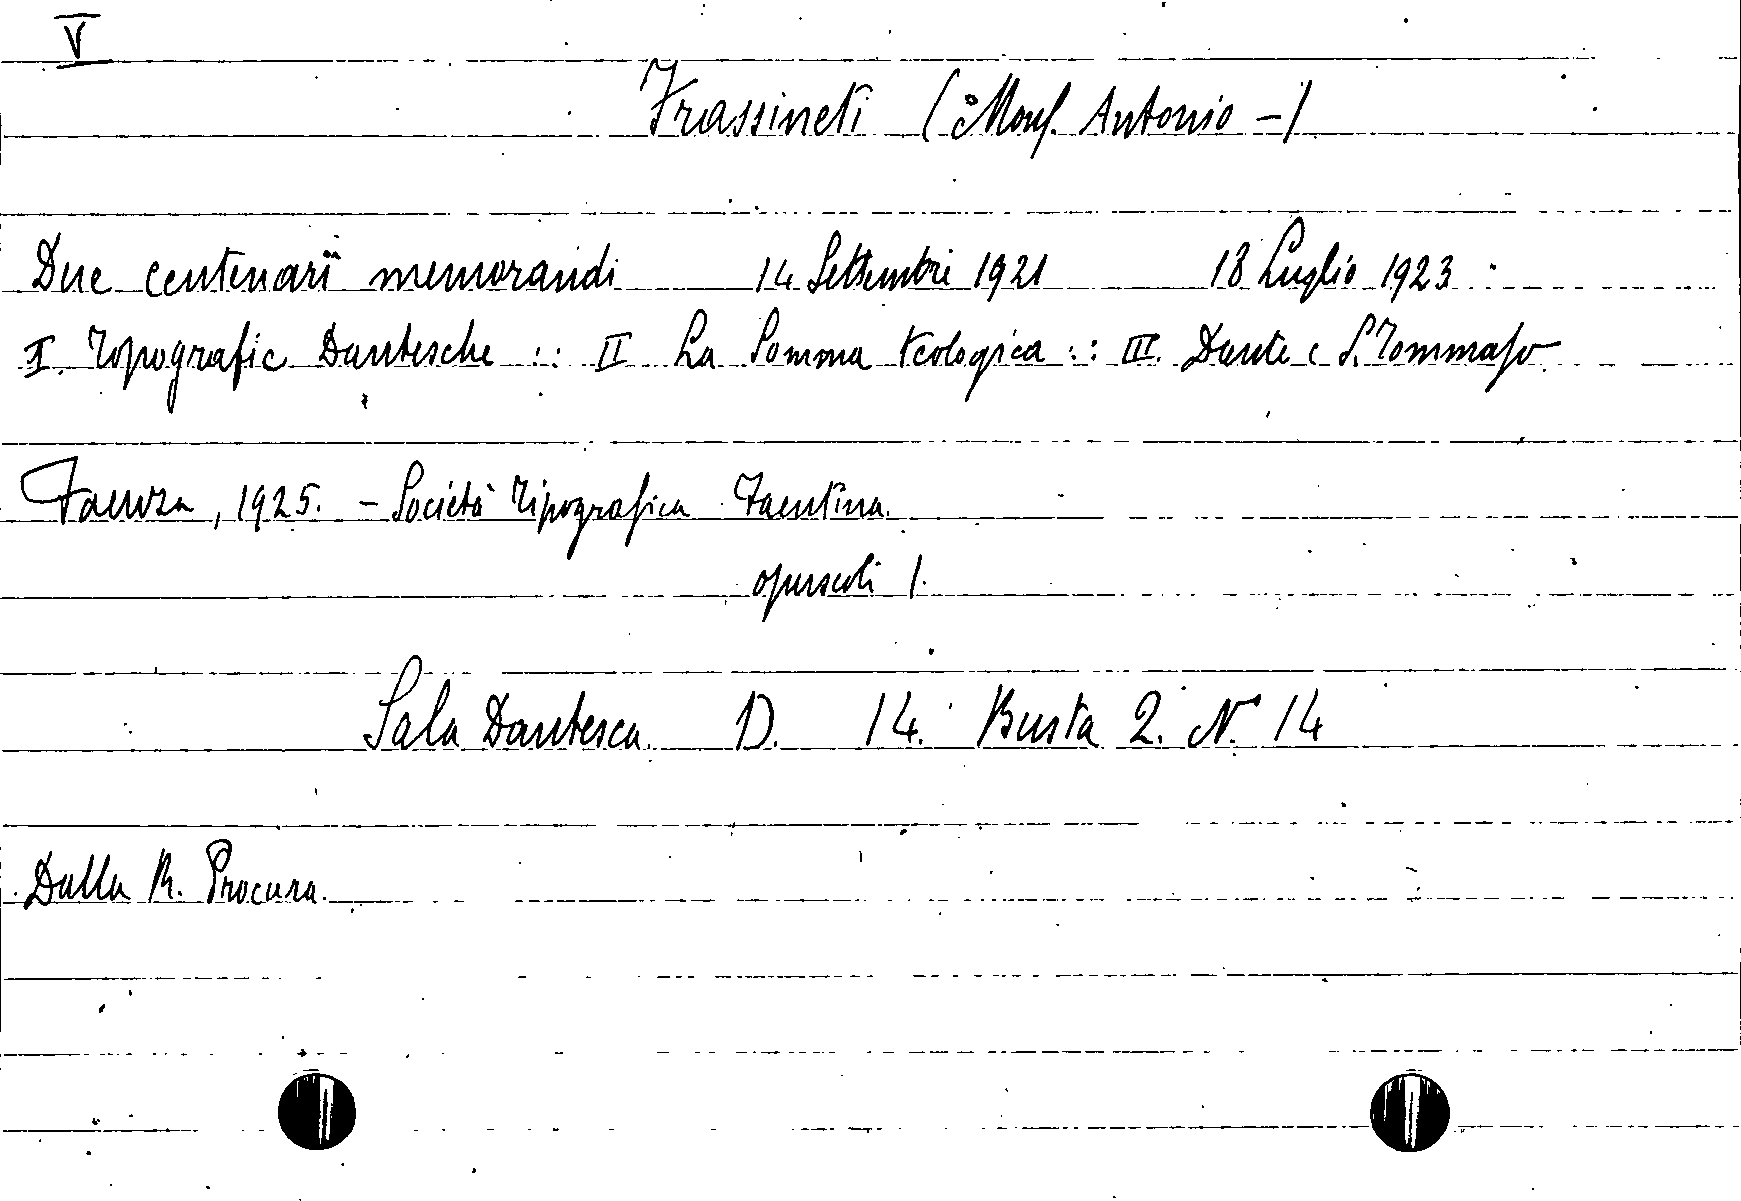 V
Frassineti (Mons. Antonio -)
Due centenarii memorandi 14 Settembre 1921 18 Luglio 1923 :
I. Topografie Dantesche :: II La Somma teologica :: III. Dante e S. Tommaso
Faenza, 1925. - Società Tipografica Faentina.
opuscoli 1.
Sala Dantesca. D. 14. Busta 2. N. 14
Dalla R. Procura.